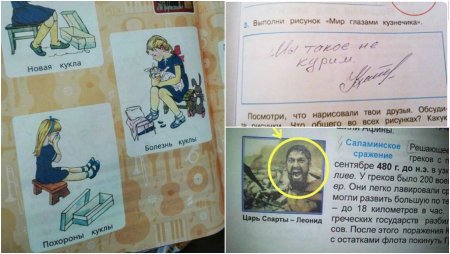 Новая кукла
Болезнь куклы
Похороны куклы
Выполни рисунок «Мир глазами кузнечика».
Мы такое не
курим.
Посмотри, что нарисовали твои друзья. Обсуди-
рисунки. Что общего во всех рисунках? Какую
Афины.
Саламинское
сражение
Решающее
греков с п
сентябре 480 г. до н.э. в уз
ливе. У греков было 200 вое
ер. Они легко лавировали ср
могли развить большую по те
– до 18 километров в час.
греческих государств разби
сов. После этого поражения К
с остатками флота покинуть Г
Царь Спарты – Леонид